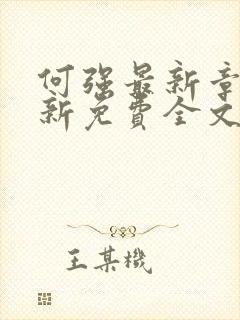 何强最新章
新免费全文
王某機